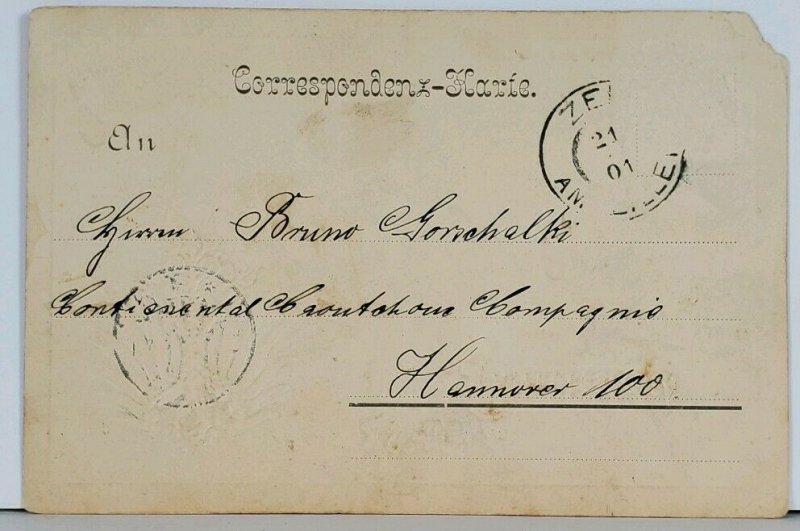 Correspondenz-Karte.
ZE
21
01
AM
An
Herrn Bruno Gorschalki
Continental Caoutchouc Compagnie
Hannover 100